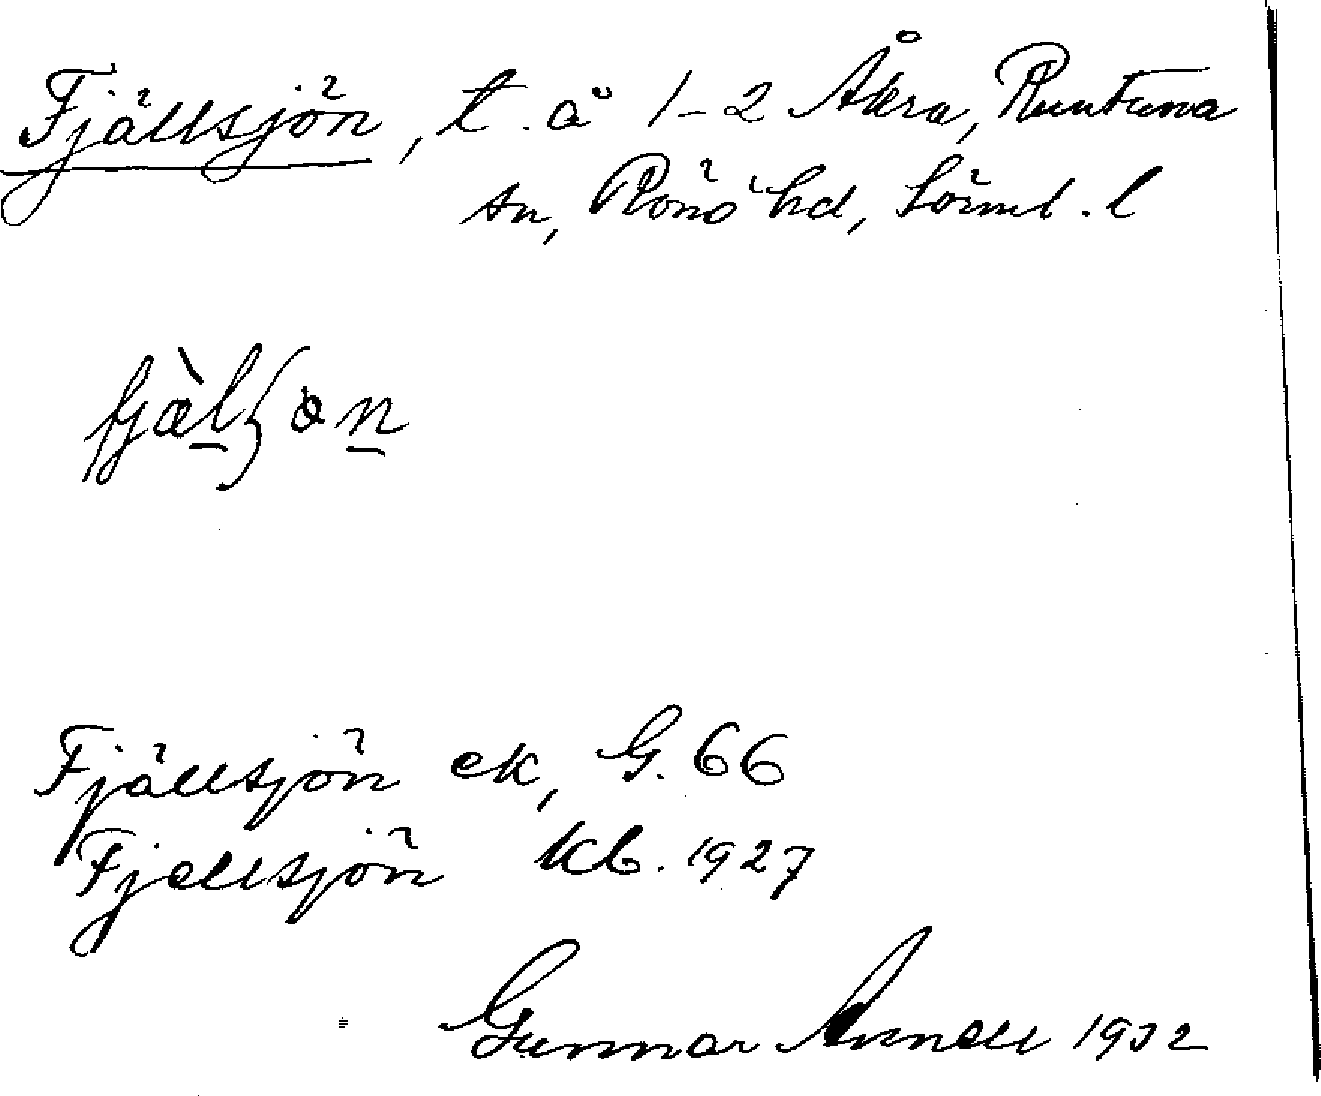 Fjällsjön, t. å 1-2 Åkra, Runtuna
sn, Rönö hd, Sörml. l
Fjällsjön ek, G. 66
Fjellsjön kb. 1927
Gunnar Arnell 1932